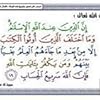 الله تعالى:
إِنَّ الدِّينَ عِندَ اللَّهِ الْإِسْلَامُ
وَمَا اخْتَلَفَ الَّذِينَ أُوتُوا الْكِتَابَ
إِلَّا مِن بَعْدِ مَا جَاءَهُمُ الْعِلْمُ بَغْيًا
بَيْنَهُمْ وَمَن يَكْفُرْ بِآيَاتِ اللَّهِ
فَإِنَّ اللَّهَ سَرِيعُ الْحِسَابِ ١٩